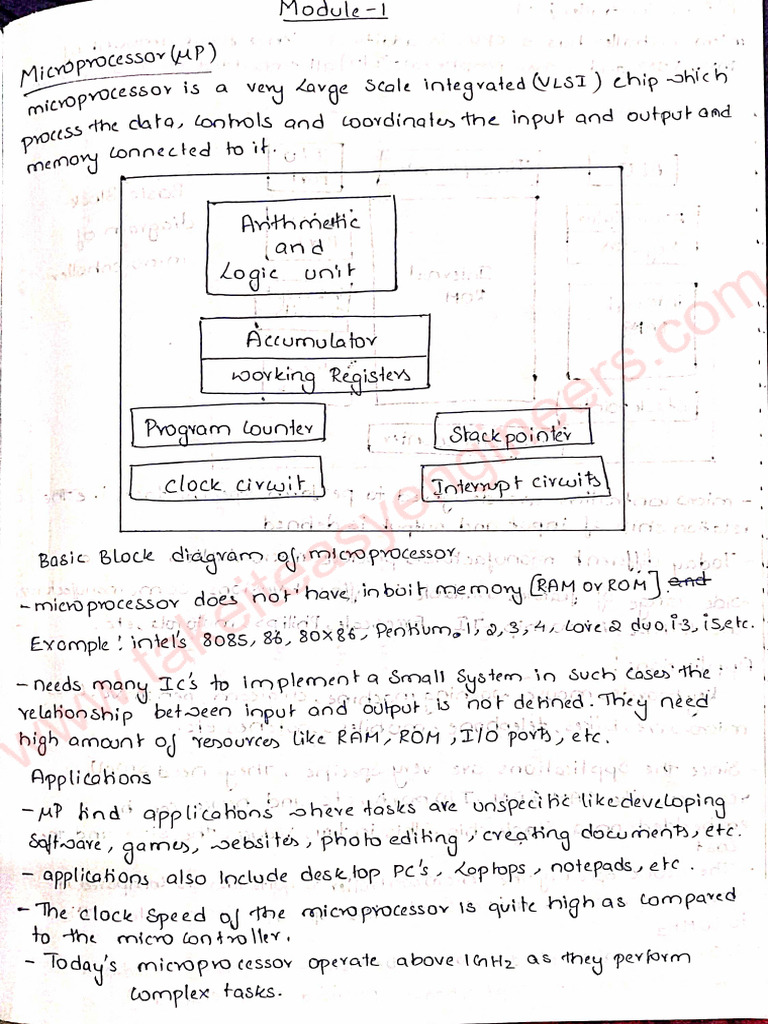 Module-1
Microprocessor (μP)
microprocessor is a very Large Scale integrated (VLSI) chip which
process the data, controls and coordinates the input and output and
memory connected to it.
Arithmetic
and
Logic unit
Accumulator
working Registers
Program counter
Stack pointer
Clock circuit
Interrupt circuits
Basic Block diagram of microprocessor
- microprocessor does not have inbuit memory [RAM or ROM] and
Example: intel's 8085, 86, 80x86, Pentium 1, 2, 3, 4, Core 2 duo, i3, i5, etc.
- needs many IC's to implement a small system in such cases the
relationship between input and output is not defined. They need
high amount of resources like RAM, ROM, I/O ports, etc.
Applications
- μP find applications where tasks are unspecific like developing
Software, games, websites, photo editing, creating documents, etc.
- applications also Include desktop PC's, Laptops, notepads, etc.
- The clock Speed of the microprocessor is quite high as compared
to the micro controller.
- Today's microprocessor operate above 1GHz as they perform
complex tasks.
www.takeiteasyengineers.com